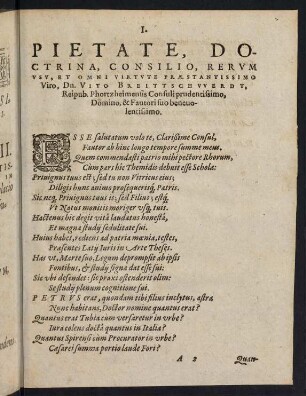 I.
PIETATE, DO-
CTRINA, CONSILIO, RERVM
VSV, ET OMNI VIRTVTE PRÆSTANTISSIMO
Viro, Dn. VITO BREITTSCHVVERDT,
Reipub. Phortzheimensis Consuli prudentissimo,
Domino, & Fautori suo benevo-
lentissimo.
ESSE salutatum volo te, Clarissime Consul,
Fautor ab hinc longo tempore summe meus.
Quem commendasti patrio mihi pectore Rhorum,
Cum pars hic Themidis debuit esse Scholæ:
Privignus tuus est; sed tu non Vitricus enim
Diligis hunc animo prosequerisq; Patris.
Sic neq; Privignus tuus is; sed Filius; estq;
Vt Natus monitis morigerusq; tuis.
Hactenus hic degit vitâ laudatus honestâ,
Et magna studij sedulitate sui.
Huius habet, rediens ad patria mœnia, testes,
Præsentes Latij Iuris in Arte Theses.
Has vt, Marte suo, Legum depromsit ab ipsis
Fontibus, & studij signa dat esse sui:
Sic vbi defendet: sic praxi ostenderit olim:
Se studij plenum cognitione sui.
PETRVS erat, quondam tibi filius inclytus, astra
Nunc habitans, Doctor nomine quantus erat?
Quantus erat Tubia cum versaretur in vrbe?
Iura colens doctâ quantus in Italia?
Quantus Spirensi cùm Procurator in vrbe?
Cæsarei summa portio laude Fori?
A 2